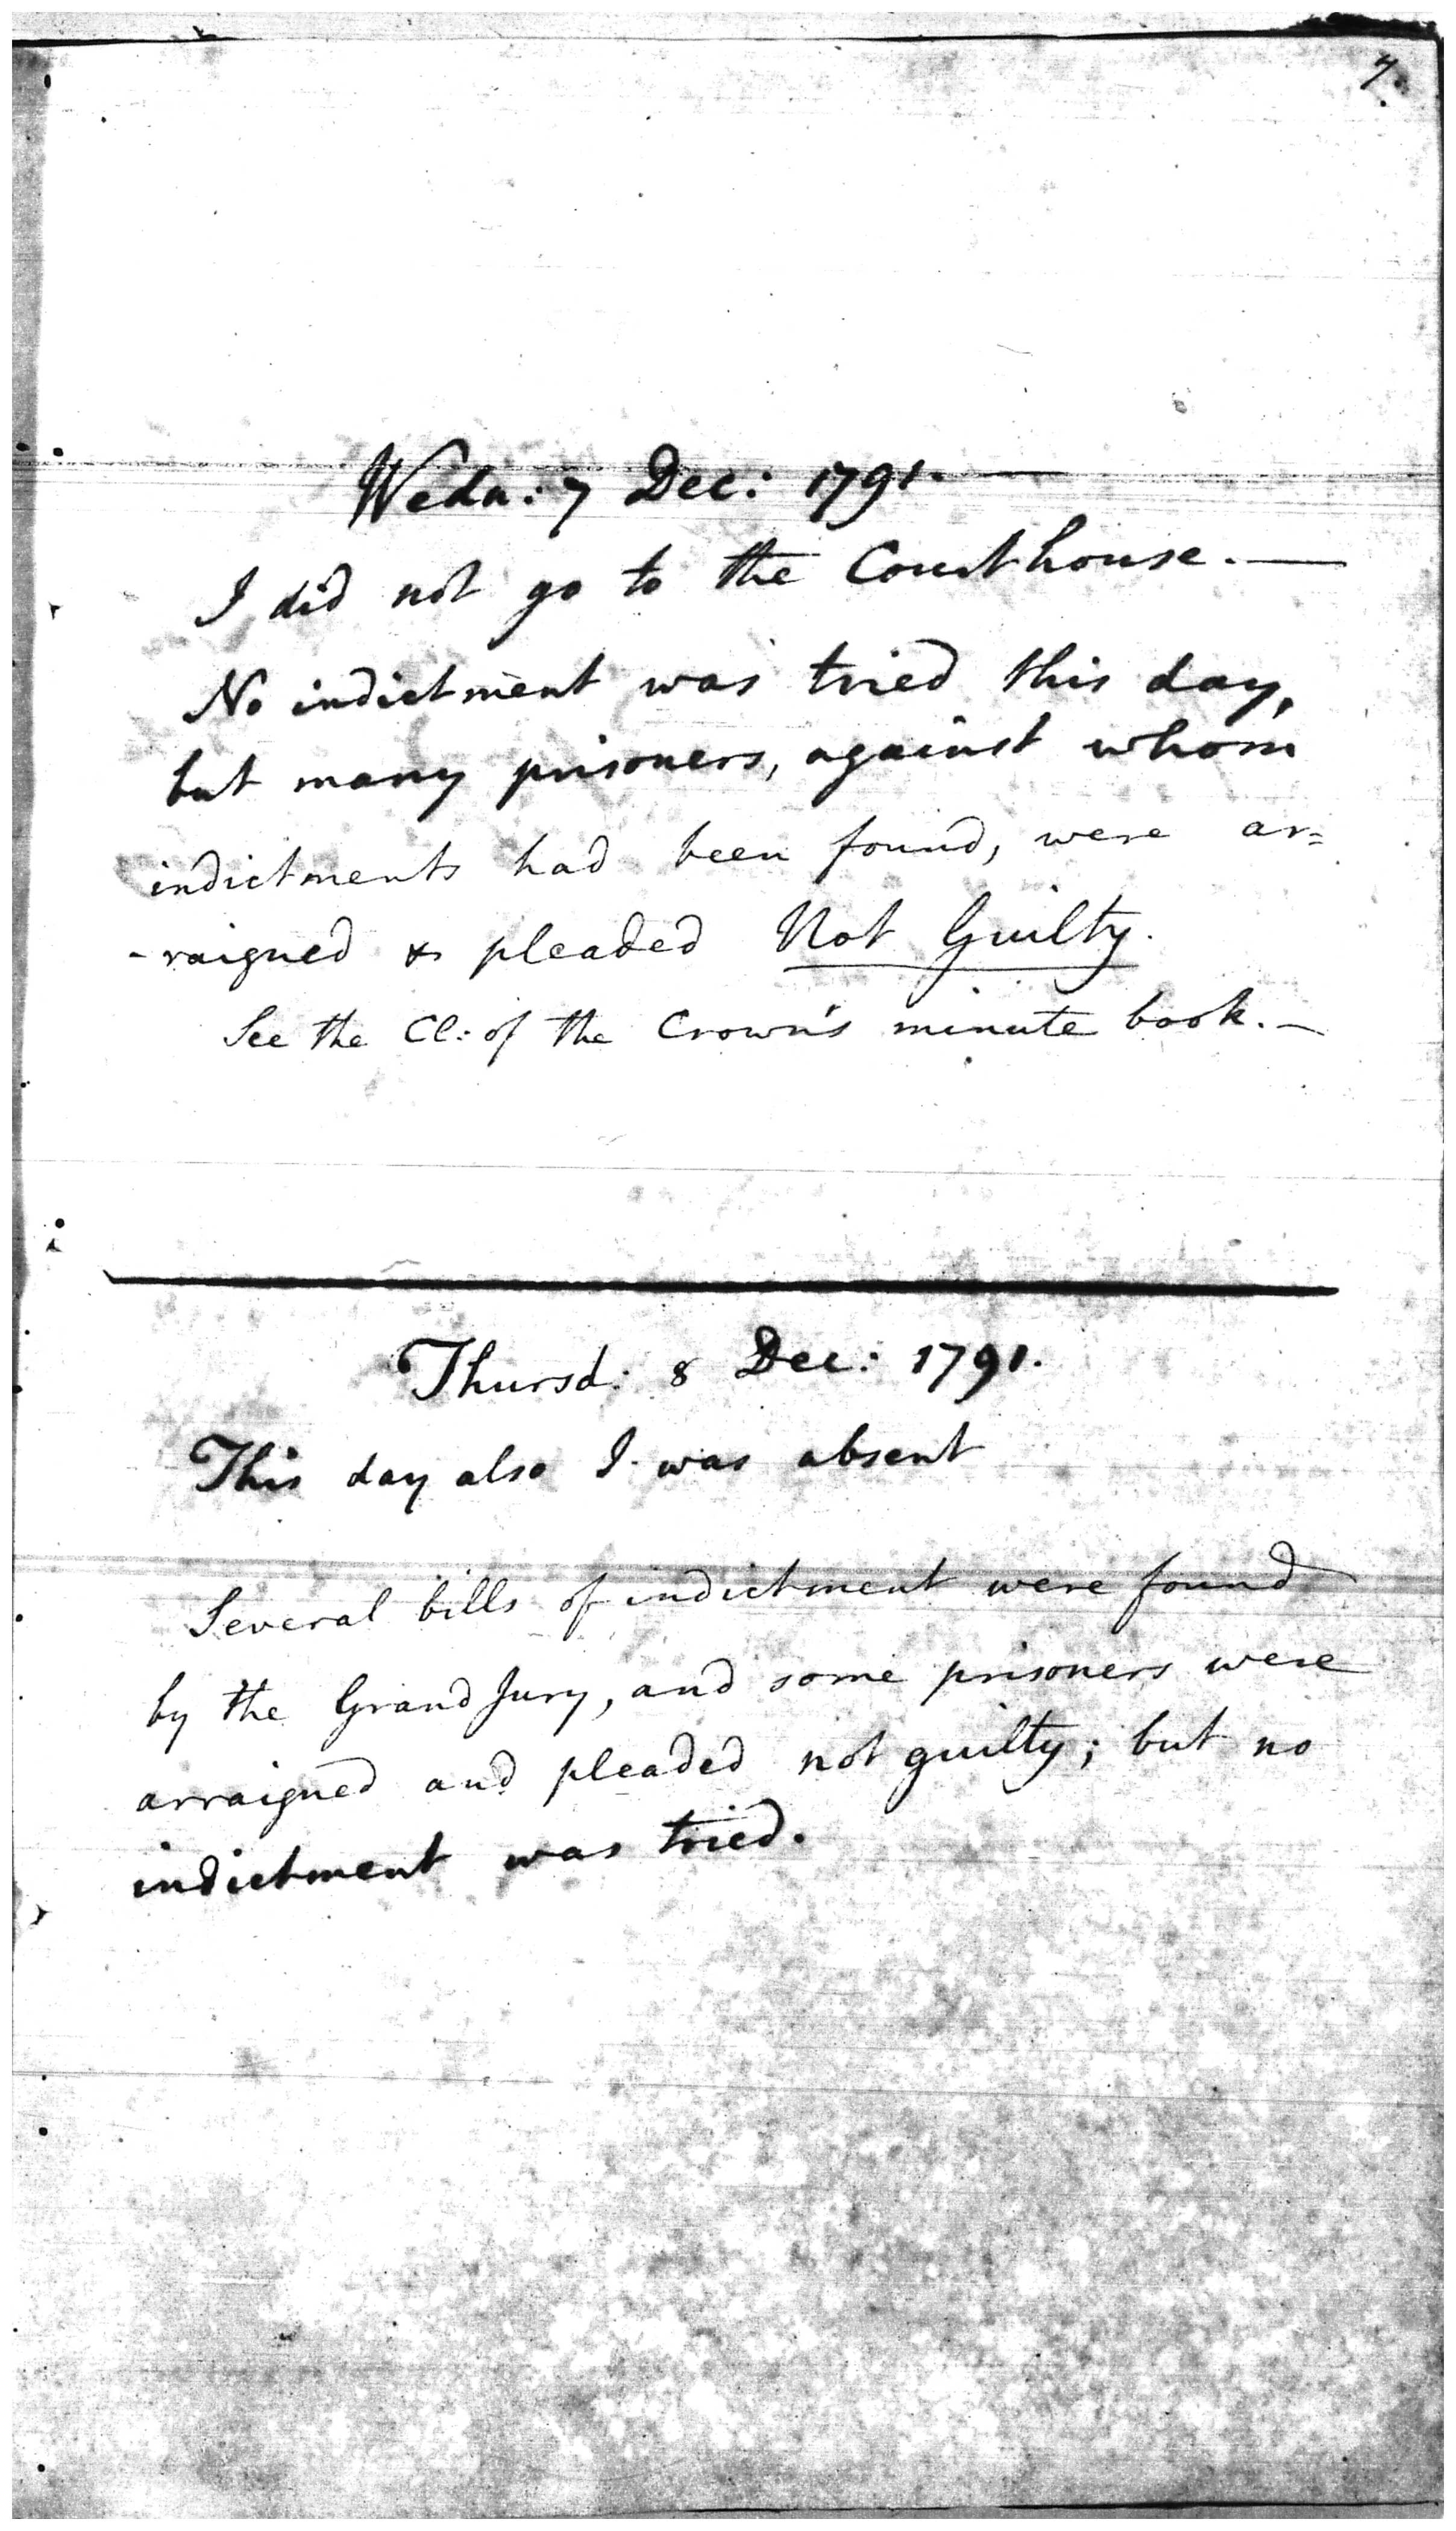 7.
Wedn: 7 Dec: 1791.—
I did not go to the Courthouse.—
No indictment was tried this day,
but many prisoners, against whom
indictments had been found, were ar=
-raigned & pleaded Not Guilty.
See the Cl: of the Crown's minute book.—
Thursd: 8 Dec: 1791.
This day also I was absent
Several bills of indictment were found
by the Grand Jury, and some prisoners were
arraigned and pleaded not guilty; but no
indictment was tried.